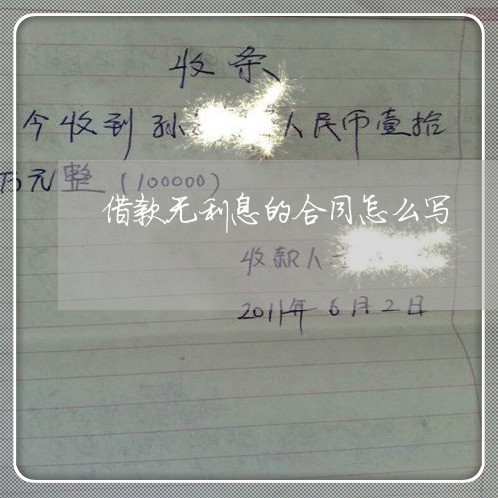 收条
今收到孙 人民币壹拾
万元整（100000）
借款无利息的合同怎么写
收款人
2011年6月2日